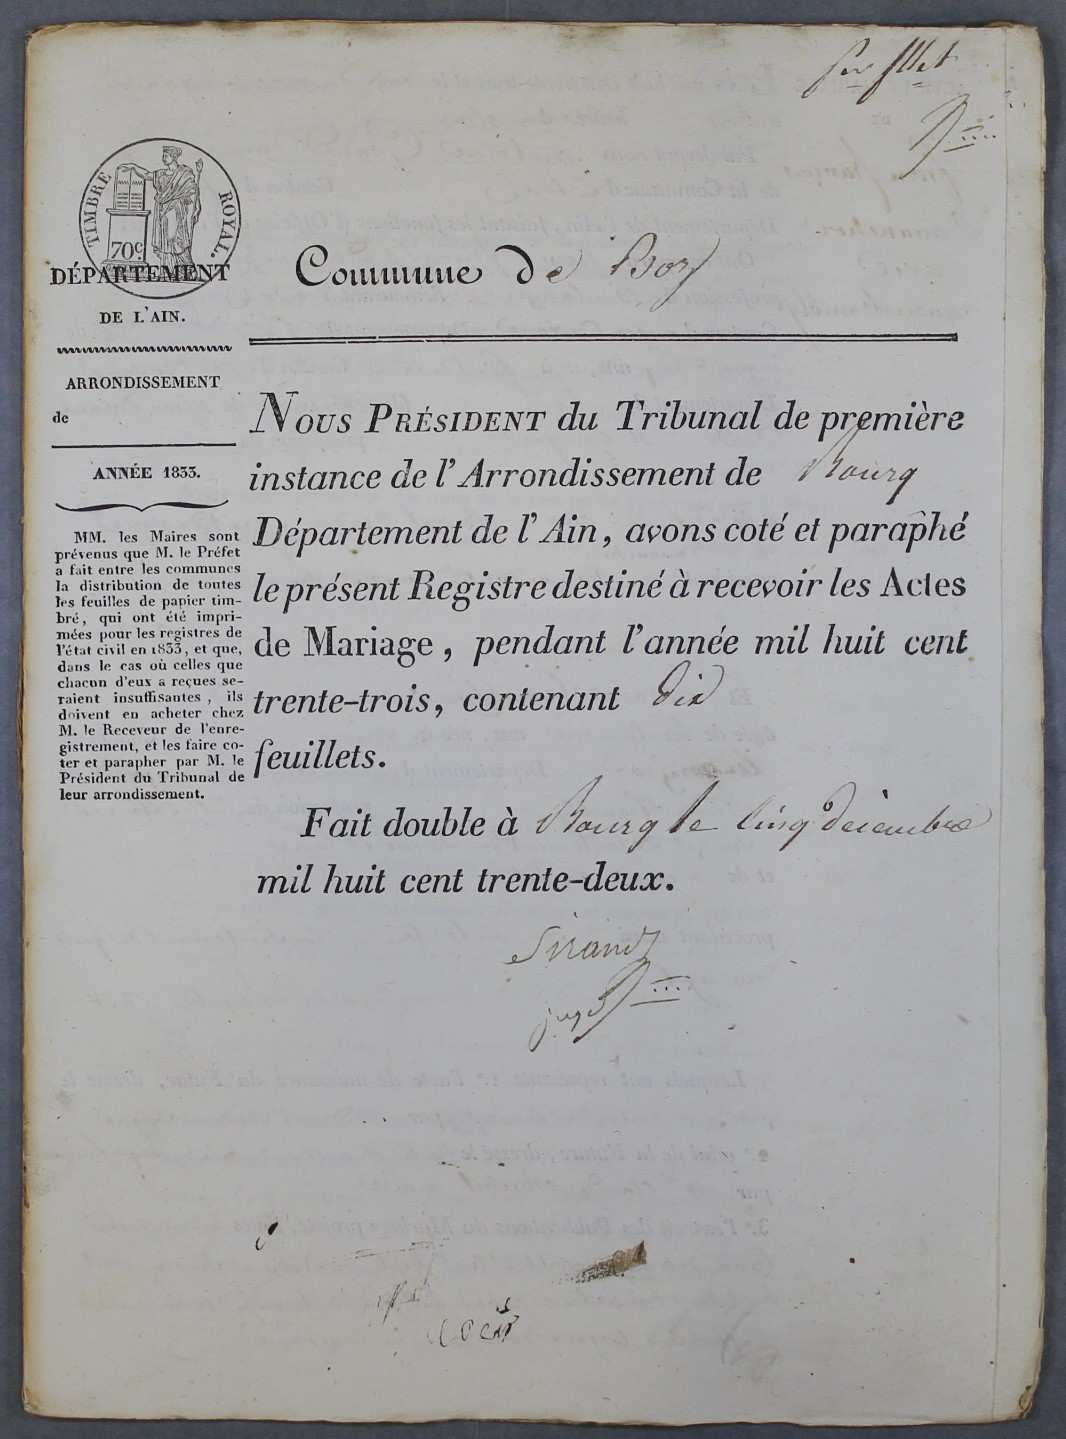 TIMBRE ROYAL.
70c
DÉPARTEMENT
DE L'AIN.
ARRONDISSEMENT
de
ANNÉE 1833.
MM. les Maires sont
prévenus que M. le Préfet
a fait entre les communes
la distribution de toutes
les feuilles de papier tim-
bré, qui ont été impri-
mées pour les registres de
l'état civil en 1833, et que,
dans le cas où celles que
chacun d'eux a reçues se-
raient insuffisantes, ils
doivent en acheter chez
M. le Receveur de l'enre-
gistrement, et les faire co-
ter et parapher par M. le
Président du Tribunal de
leur arrondissement.
Commune de Boz
NOUS PRÉSIDENT du Tribunal de première
instance de l'Arrondissement de Bourg
Département de l'Ain, avons coté et paraphé
le présent Registre destiné à recevoir les Actes
de Mariage, pendant l'année mil huit cent
trente-trois, contenant dix
feuillets.
Fait double à Bourg le cinq décembre
mil huit cent trente-deux.
juge